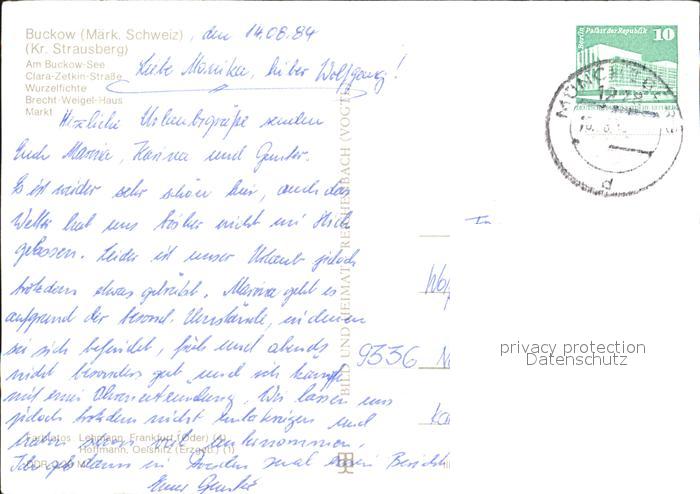 Buckow (Märk. Schweiz), den 14.08.84
(Kr. Strausberg)
Am Buckow-See
Clara-Zetkin-Straße
Wurzelfichte
Brecht-Weigel-Haus
Markt
Liebe Monika, lieber Wolfgang!
Herzliche Urlaubsgrüße senden
Euch Marina, Karina und Gunter.
Es ist wieder sehr schön hier, auch das
Wetter hat uns bisher nicht im Stich
gelassen. Leider ist unser Urlaub jedoch
trotzdem etwas getrübt. Marina geht es
aufgrund der besond. Umstände, in denen
sie sich befindet, früh und abends
nicht besonders gut und ich kämpfe
mit einer Ohrenentzündung. Wir lassen uns
jedoch trotzdem nicht unterkriegen und
haben schon viel unternommen.
Ich geb dann in Dresden mal einen Bericht
Euer Gunter
Farbfotos: Lehmann, Frankfurt (Oder)
Hoffmann, Oelsnitz (Erzgeb.) (1)
BILD UND HEIMAT REICHENBACH (VOGTL
Berlin, Palast der Republik
10
9336
privacy protection
Datenschutz